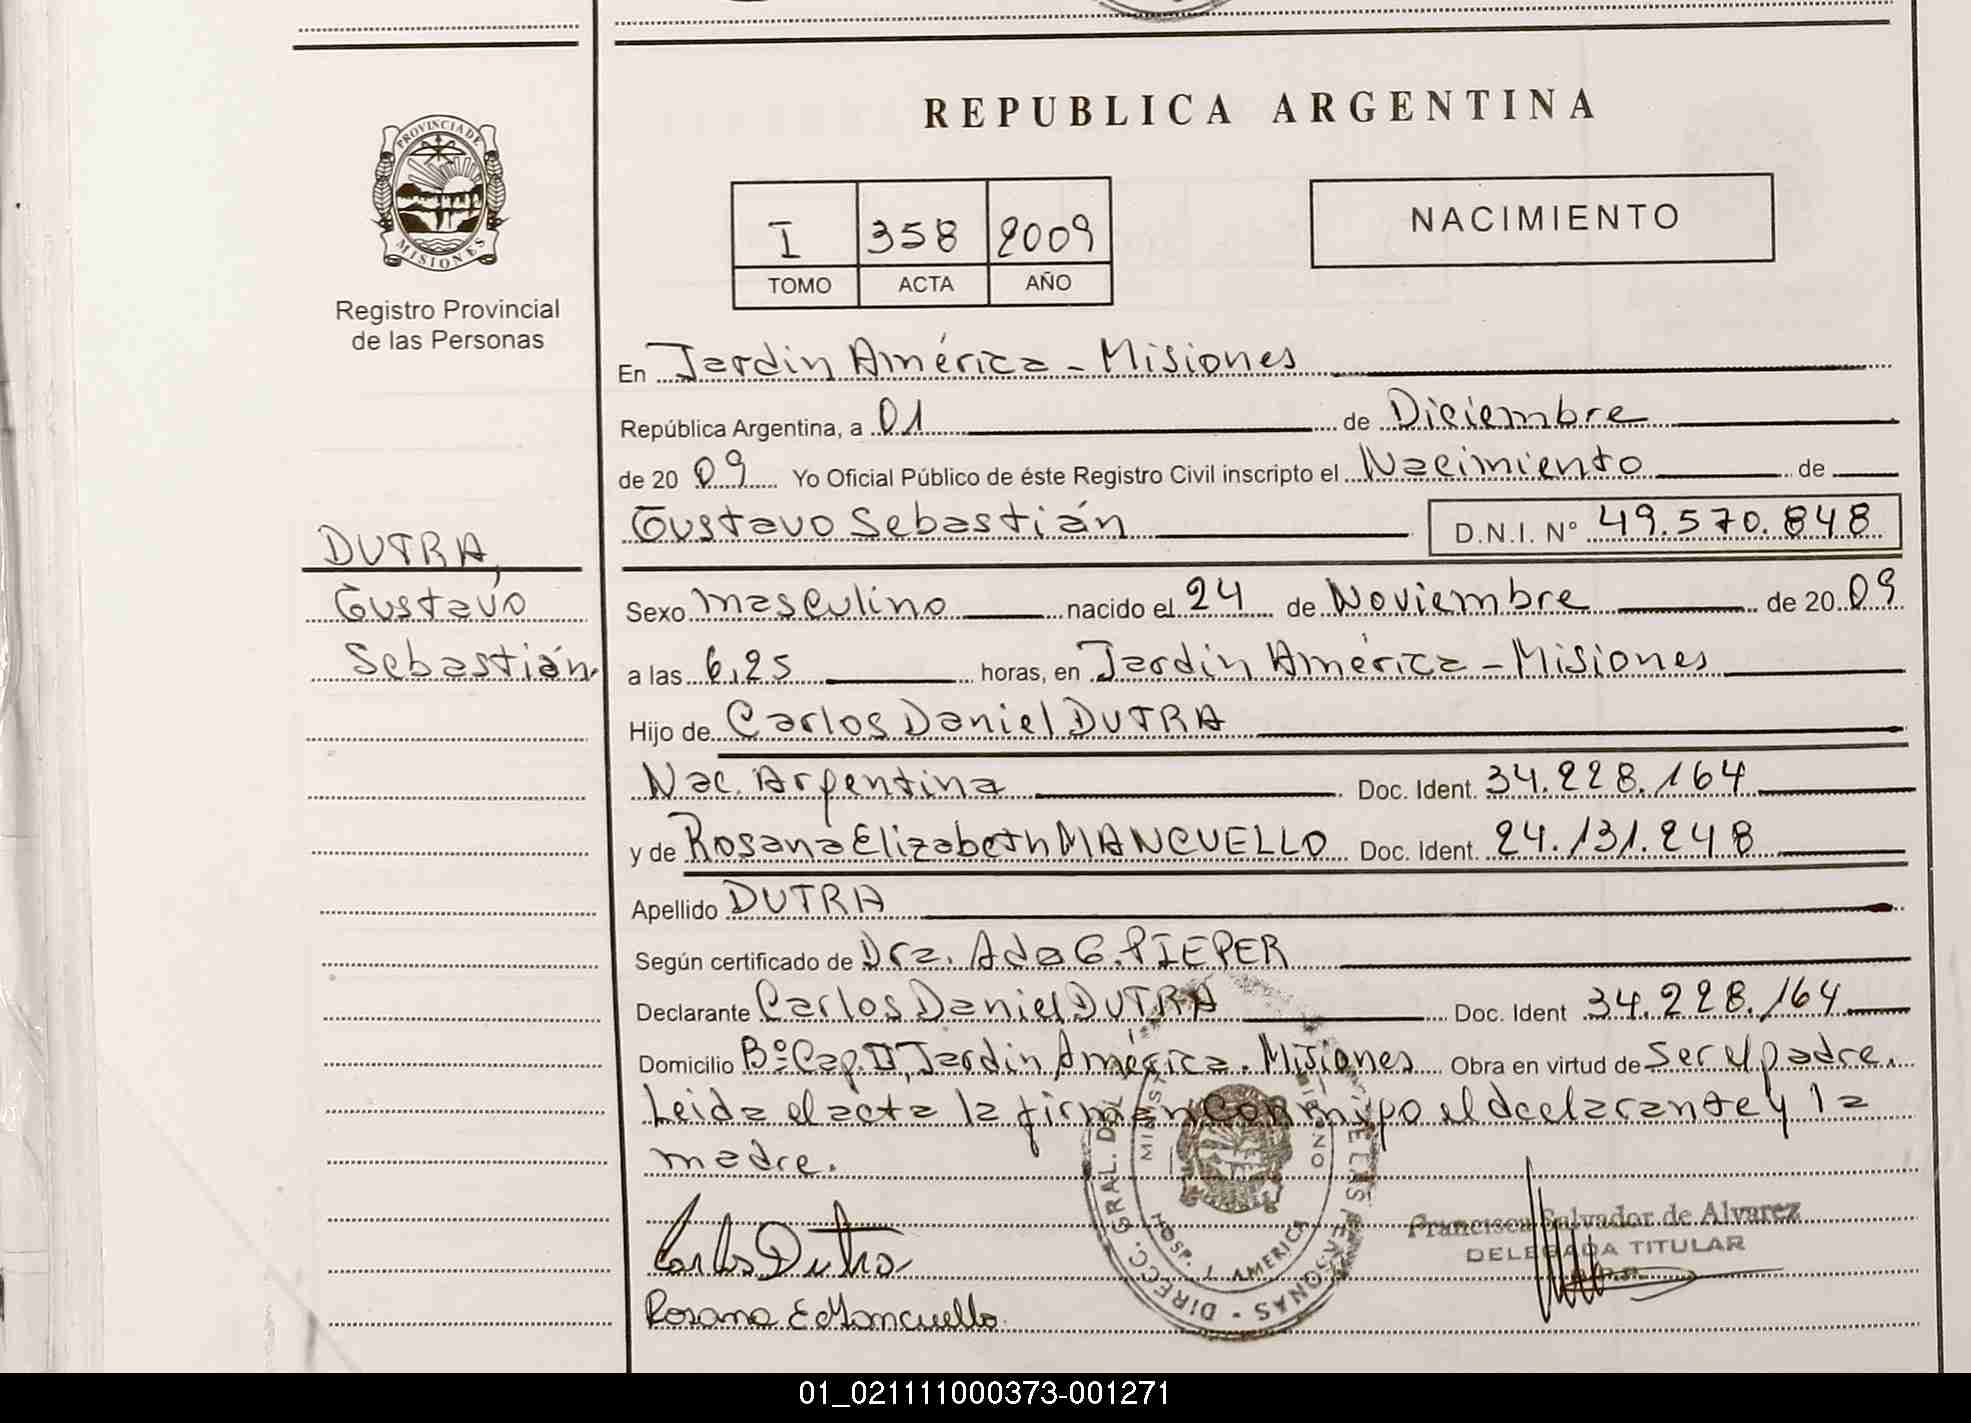 REPUBLICA ARGENTINA
PROVINCIA DE MISIONES
Registro Provincial
de las Personas
I 358 2009
TOMO ACTA AÑO
NACIMIENTO
En Jardin América - Misiones
República Argentina, a 01 de Diciembre
de 2009 Yo Oficial Público de éste Registro Civil inscripto el Nacimiento de
Gustavo Sebastián D.N.I. Nº 49.570.848
DUTRA,
Gustavo
Sebastián
Sexo masculino nacido el 24 de Noviembre de 2009
a las 6,25 horas, en Jardín América - Misiones
Hijo de Carlos Daniel DUTRA
Nac. Argentina Doc. Ident. 34.228.164
y de Rosana Elizabeth MANCUELLO Doc. Ident. 24.131.248
Apellido DUTRA
Según certificado de Dra. Ada G. PIEPER
Declarante Carlos Daniel DUTRA Doc. Ident 34.228.164
Domicilio Bº Cap. II, Jardin América. Misiones Obra en virtud de ser el padre.
Leida el acta la firman conmigo el declarante y la
madre.
Carlos Dutra
Rosana E Mancuello
DIRECC. GRAL. DEL PERSONAS
HOSP. J. AMERICA
Francisca Salvador de Alvarez
DELEGADA TITULAR
01_021111000373-001271